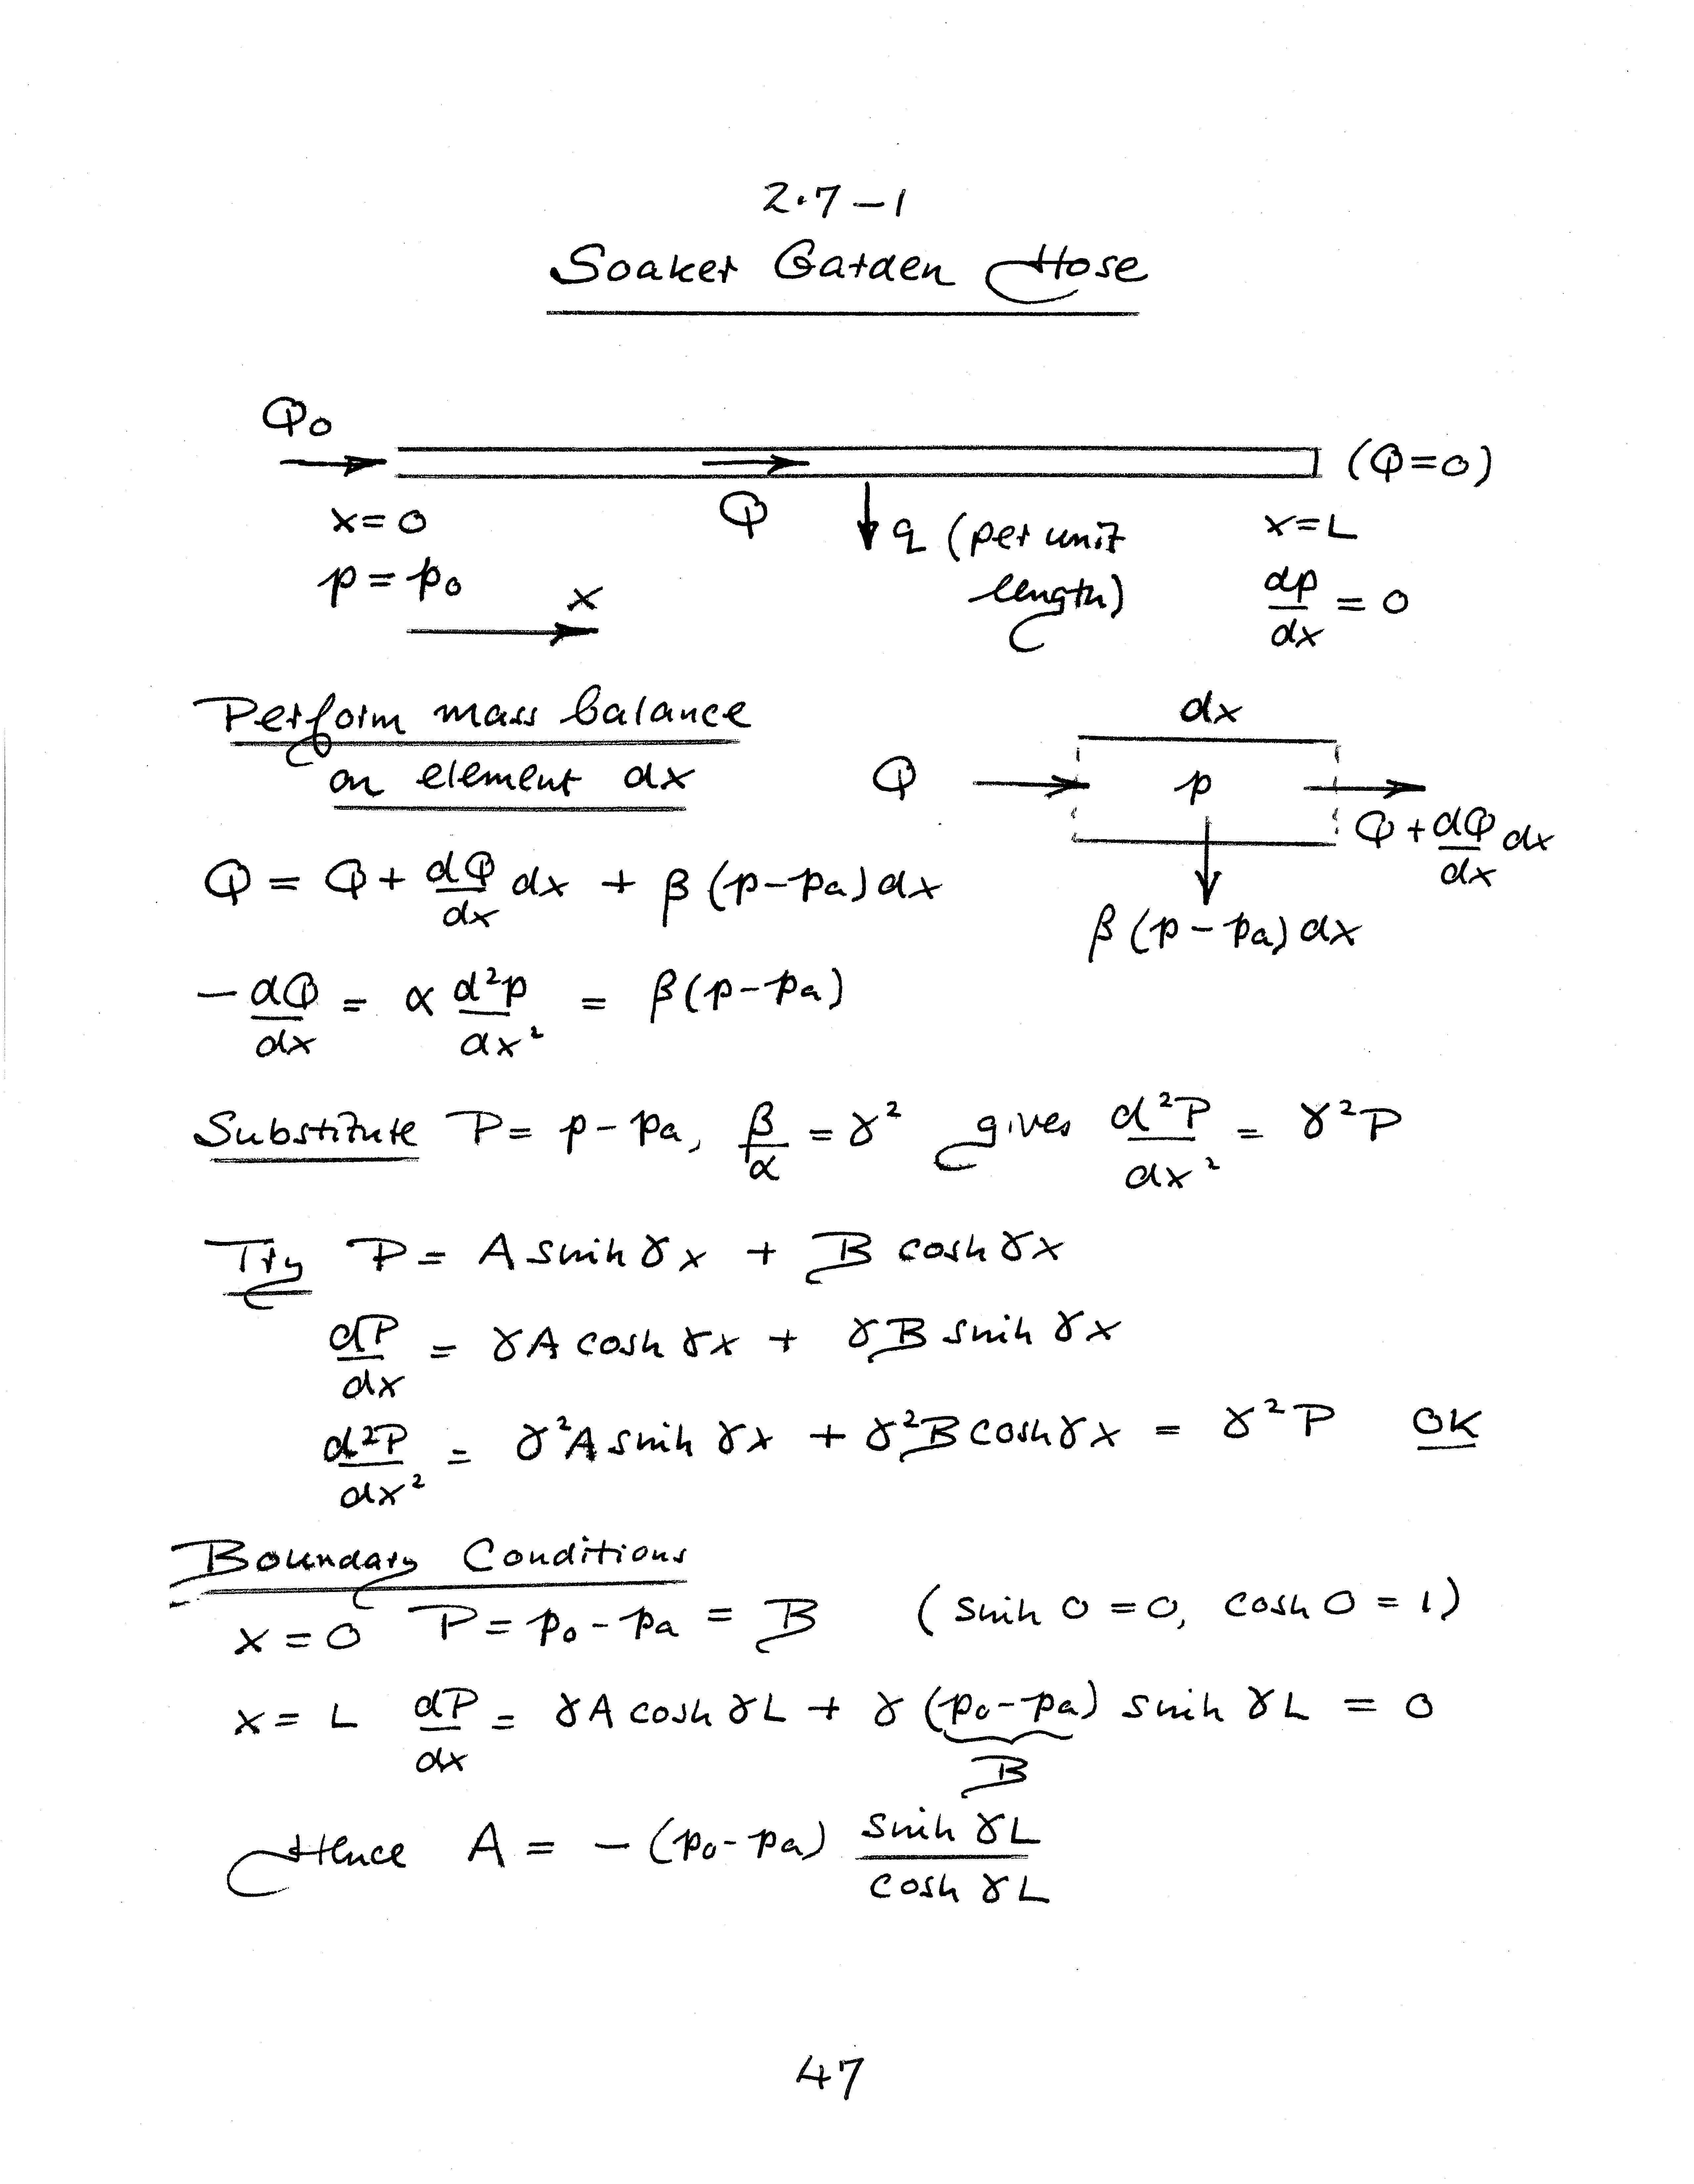 2.7-1
Soaker Garden Hose
Q₀
(Q=0)
x=0
Q
q (per unit length)
x=L
p=p₀
x
dp/dx = 0
Perform mass balance
on element dx
dx
Q
p
Q + dQ/dx dx
β(p-pa)dx
Q = Q + dQ/dx dx + β(p-pa)dx
-dQ/dx = α d²p/dx² = β(p-pa)
Substitute P = p-pa, β/α = γ² gives d²P/dx² = γ²P
Try P = A sinh γx + B cosh γx
dP/dx = γA cosh γx + γB sinh γx
d²P/dx² = γ²A sinh γx + γ²B cosh γx = γ²P OK
Boundary Conditions
x=0 P = p₀-pa = B (sinh 0 = 0, cosh 0 = 1)
x=L dP/dx = γA cosh γL + γ(p₀-pa) sinh γL = 0
B
Hence A = -(p₀-pa) sinh γL / cosh γL
47